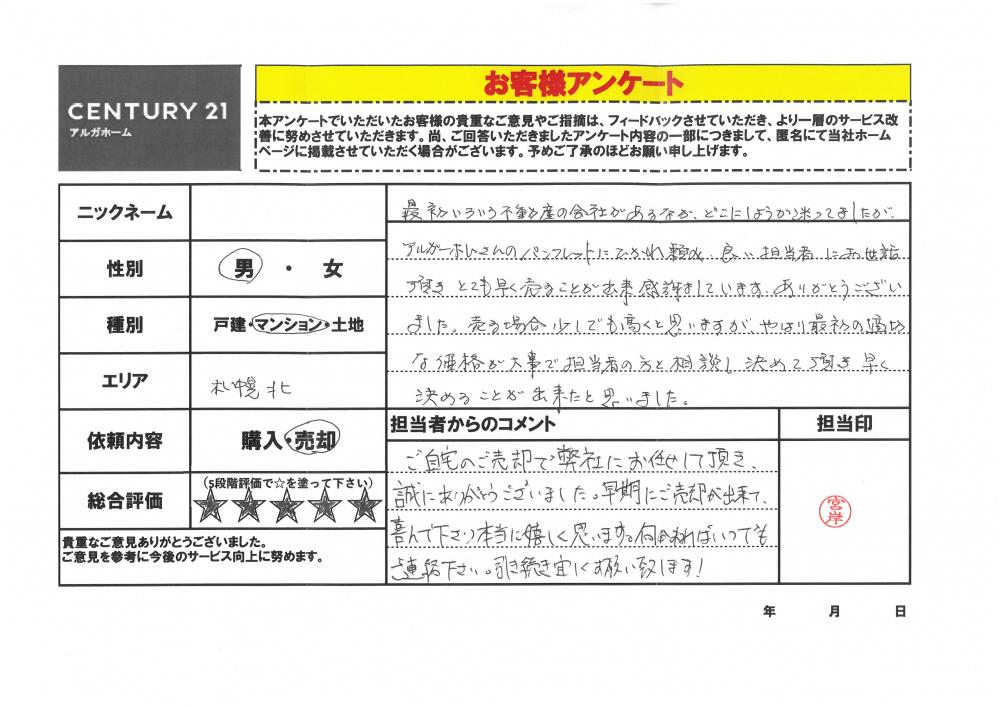 CENTURY 21
アルガホーム
お客様アンケート
本アンケートでいただいたお客様の貴重なご意見やご指摘は、フィードバックさせていただき、より一層のサービス改
善に努めさせていただきます。尚、ご回答いただきましたアンケート内容の一部につきまして、匿名にて当社ホーム
ページに掲載させていただく場合がございます。予めご了承のほどお願い申し上げます。
ニックネーム
性別
男・女
種別
戸建・マンション・土地
エリア
札幌北
依頼内容
購入・売却
総合評価
(5段階評価で☆を塗って下さい)
★★★★★
貴重なご意見ありがとうございました。
ご意見を参考に今後のサービス向上に努めます。
最初いろいろ不動産の会社があるなか、どこにしようか迷ってましたが、
アルガーホームさんのパンフレットにひかれ頼み、良い担当者にお世話
頂き とても早く売ることが出来感謝をしています。ありがとうござい
ました。売る場合少しでも高くと思いますが、やはり最初の適切
な価格が大事で担当者の方と相談し決めて頂き早く
決めることが出来たと思いました。
担当者からのコメント
ご自宅のご売却で弊社にお任せして頂き、
誠にありがとうございました。早期にご売却が出来て、
喜んで下さり本当に嬉しく思います。何かあればいつでも
ご連絡下さい。引き続き宜しくお願い致します!
担当印
宮岸
年 月 日